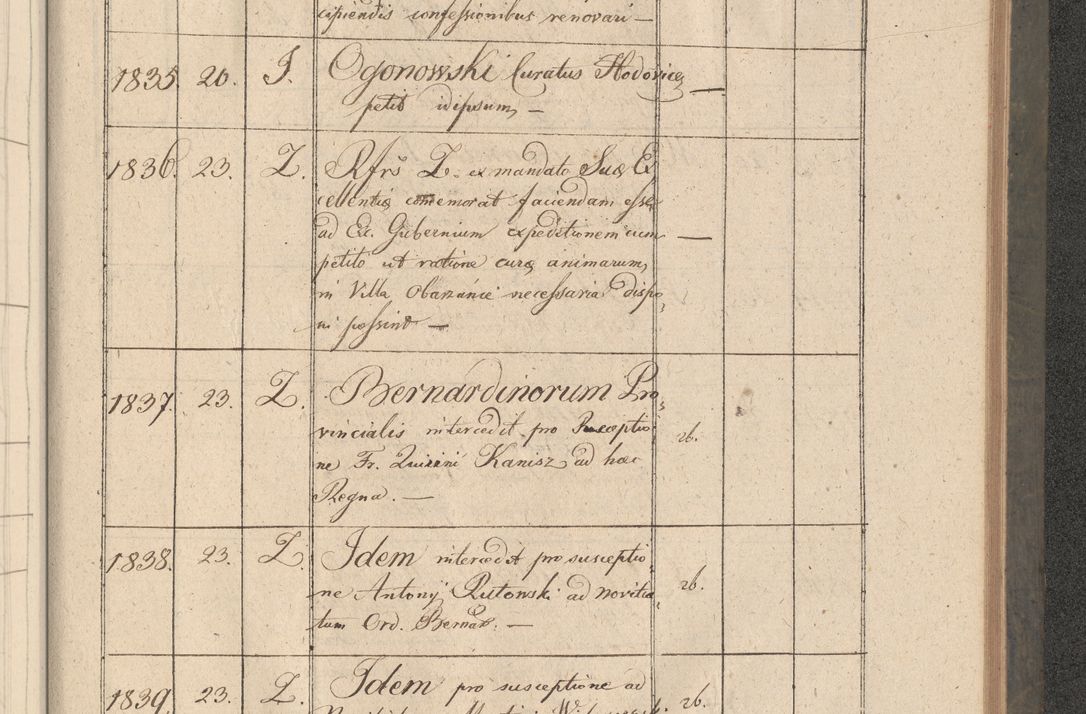 cipiendis confessionibus renovari —
1835 20. J. Ogonowski Curatus Hodovice
petit idipsum, — —
1836. 23. Z. Rfrs Z. ex mandato Suæ Ex
cellentiæ comemorat faciendam esse
ad Ex. Gubernium expeditionem cum —
petito ut ratione curæ animarum,
in Villa Obarzance necessaria dispo,
ni possint —
1837. 23. Z. Bernardinorum Pro,
vincialis intercedit pro Susceptio 26.
ne Fr. Quirini Kanisz ad hæc
Regna. —
1838. 23. Z. Idem intercedit pro susceptio,
ne Antonij Rutowski ad novitia, 26.
tum Ord. Bernar. —
1839. 23. Z. Idem pro susceptione ad 26.